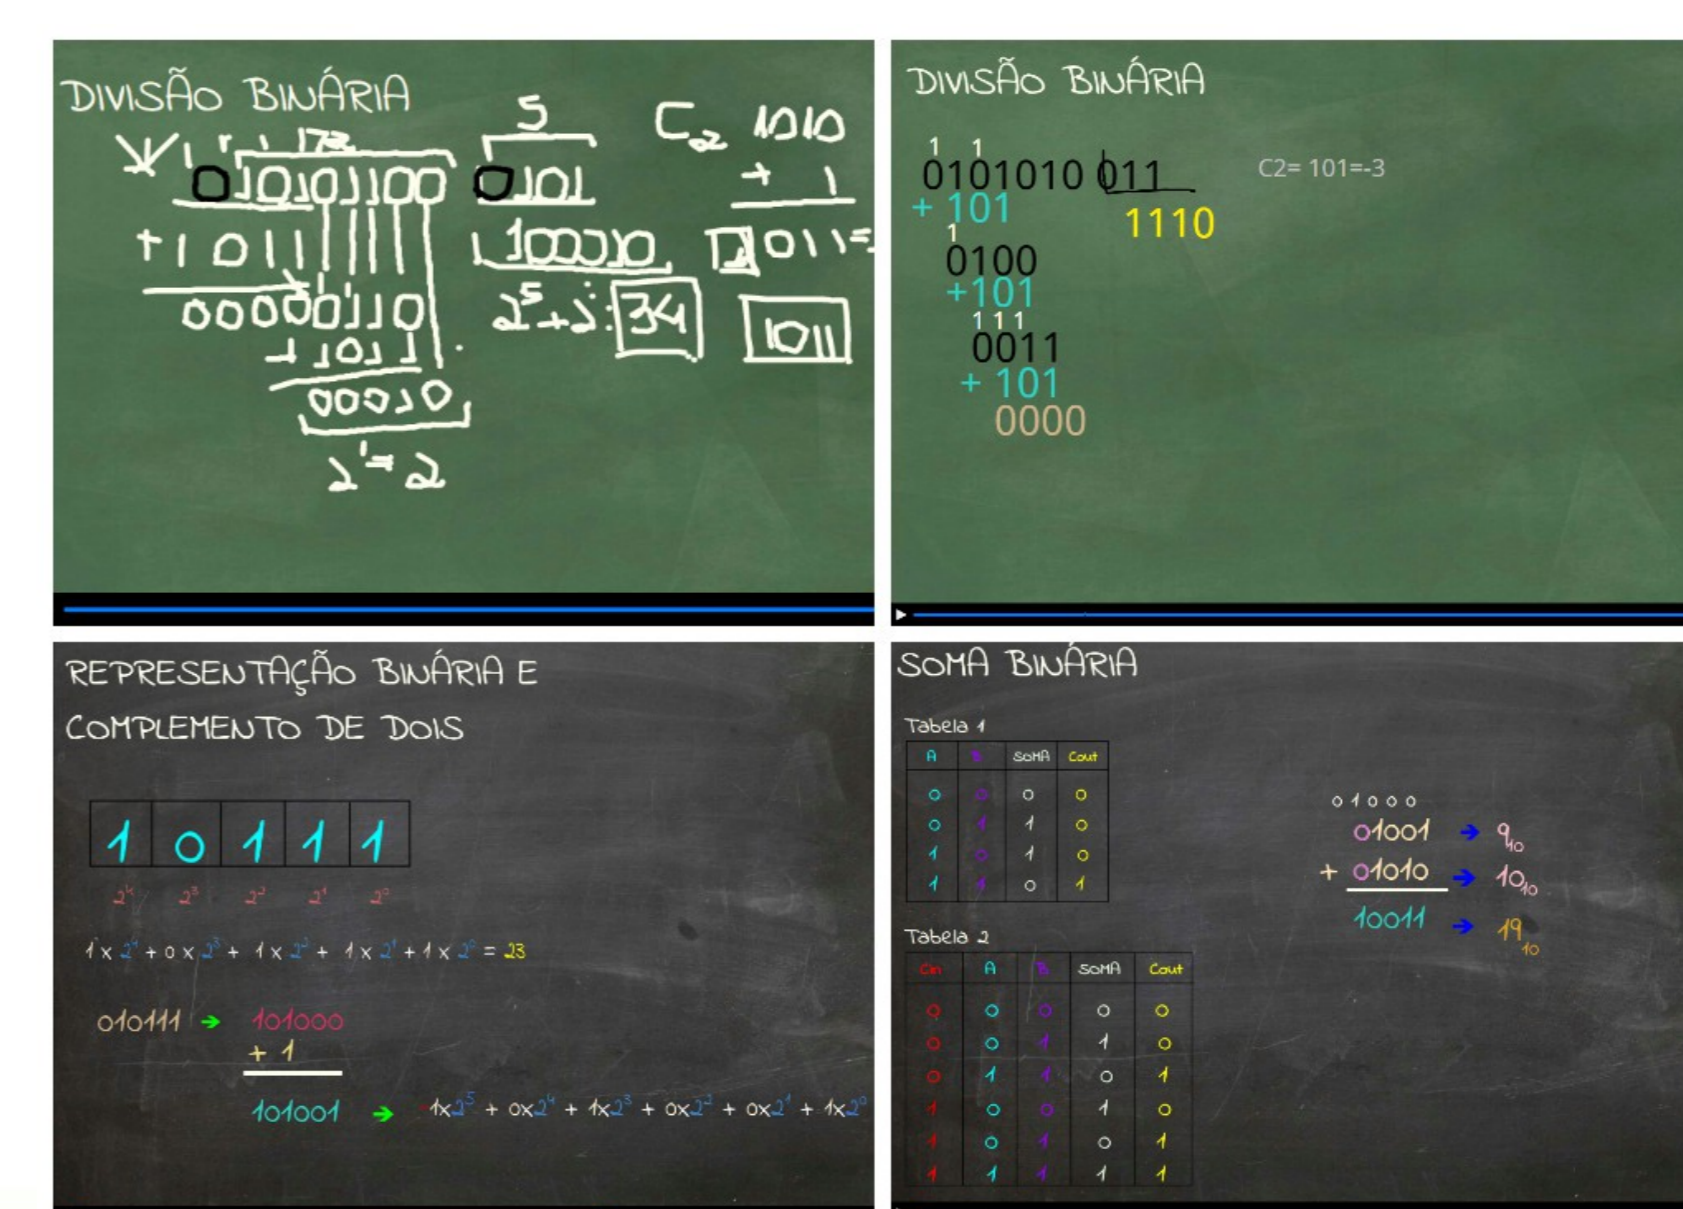 DIVISÃO BINÁRIA
172
5
C2 1010
+ 1
010101100 0101
+1011
100010
1011=
00000110
2^5+2: 34
1011
11011
00010
2^1=2
DIVISÃO BINÁRIA
1 1
0101010 011
C2= 101=-3
+ 101
1110
1
0100
+101
1 1 1
0011
+ 101
0000
REPRESENTAÇÃO BINÁRIA E
COMPLEMENTO DE DOIS
1 0 1 1 1
2^4 2^3 2^2 2^1 2^0
1 x 2^4 + 0 x 2^3 + 1 x 2^2 + 1 x 2^1 + 1 x 2^0 = 23
010111 → 101000
+ 1
101001 → -1x2^5 + 0x2^4 + 1x2^3 + 0x2^2 + 0x2^1 + 1x2^0
SOMA BINÁRIA
Tabela 1
A B SOMA Cout
0 0 0 0
0 1 1 0
1 0 1 0
1 1 0 1
Tabela 2
Cin A B SOMA Cout
0 0 0 0 0
0 0 1 1 0
0 1 1 0 1
1 0 0 1 0
1 0 1 0 1
1 1 1 1 1
0 1 0 0 0
01001 → 9₁₀
+ 01010 → 10₁₀
10011 → 19₁₀